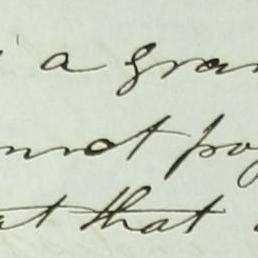 a gran
nnot pos
at that